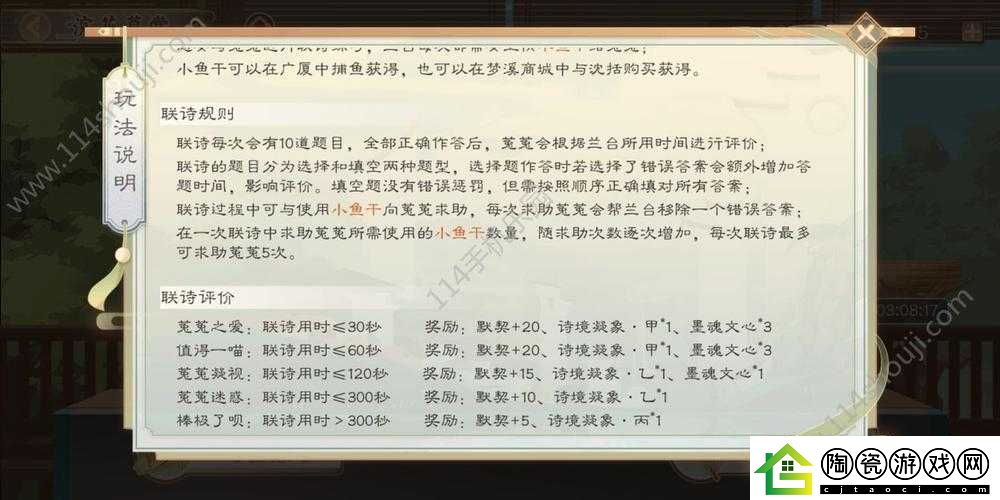 小鱼干可以在广厦中捕鱼获得，也可以在梦溪商城中与沈括购买获得。
玩法说明
联诗规则
联诗每次会有10道题目，全部正确作答后，菟菟会根据兰台所用时间进行评价；
联诗的题目分为选择和填空两种题型，选择题作答时若选择了错误答案会额外增加答
题时间，影响评价。填空题没有错误惩罚，但需按照顺序正确填对所有答案；
联诗过程中可与使用小鱼干向菟菟求助，每次求助菟菟会帮兰台移除一个错误答案；
在一次联诗中求助菟菟所需使用的小鱼干数量，随求助次数逐次增加，每次联诗最多
可求助菟菟5次。
联诗评价
菟菟之爱：联诗用时≤30秒 奖励：默契+20、诗境凝象·甲*1、墨魂文心*3
值得一喵：联诗用时≤60秒 奖励：默契+20、诗境凝象·甲*1、墨魂文心*3
菟菟凝视：联诗用时≤120秒 奖励：默契+15、诗境凝象·乙*1、墨魂文心*1
菟菟迷惑：联诗用时≤300秒 奖励：默契+10、诗境凝象·乙*1
棒极了呗：联诗用时＞300秒 奖励：默契+5、诗境凝象·丙*1
03:08:17
www.114shouji.com
114手机乐园
114shouji.com
陶瓷游戏网
cjtaoci.com